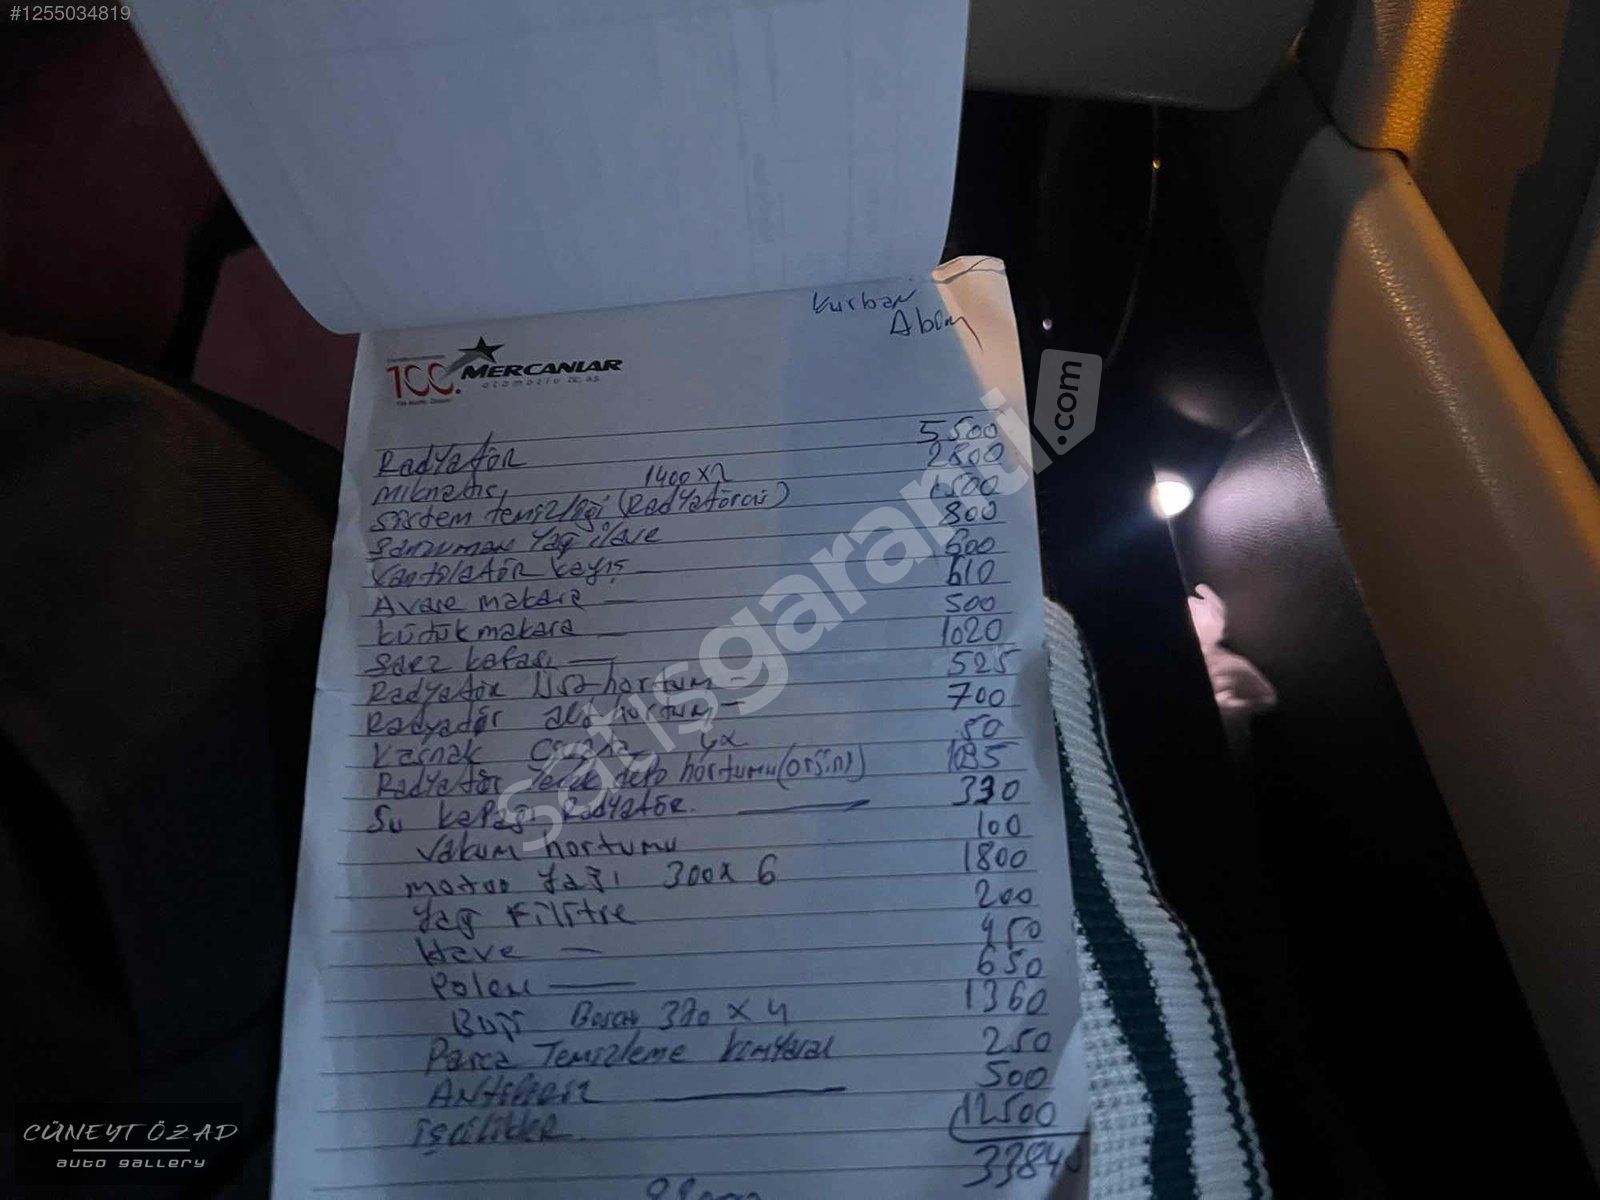 #1255034819
Kurban
Abim
100. MERCANLAR
otomotiv tic. a.ş.
Radyatör 5500
miknatıs, 1400x2 2800
sistem temizliği (Radyatörcü) 1500
şanzuman yağ ilave 800
Vantolatör kayış 600
Avare makara 610
kütük makara 500
şarz kafası 1020
Radyatör üst hortum 525
Radyatör alt hortum 700
Kasnak 4x 50
Radyatör yedek depo hortumu (orjin)
Su kapağı Radyatör. 330
Vakum hortumu 100
motor yağı 300x6 1800
yağ Filitre 200
Hava 450
Polen 650
Buji Bosch x 4 1360
Parça Temizleme kimyasal 250
Antifiriz 500
işçilikler. 12500
33840
satışgaranti.com
CÜNEYT ÖZAD
auto gallery